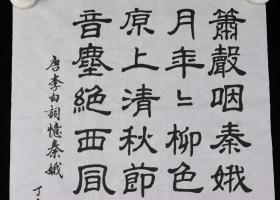 簫聲咽秦娥
月年〻柳色
原上清秋節
音塵絕西風
唐李白詞憶秦娥
丁